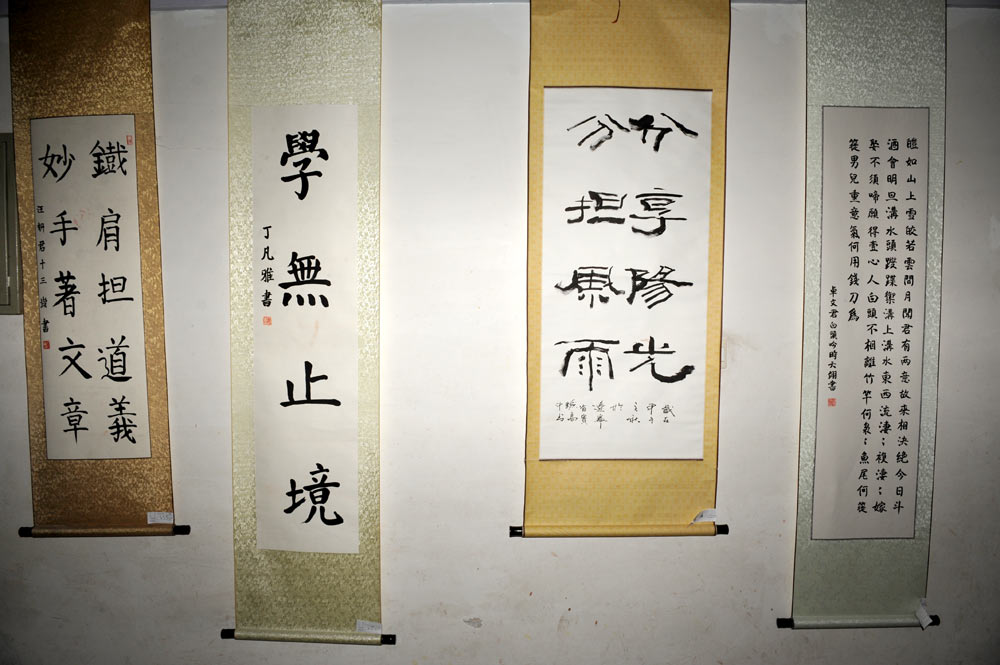 鐵肩担道義
妙手著文章
汪妍君十三歲書
學無止境
丁凡雅書
分享陽光
分担風雨
歲在
甲午
之秋
於
皚如山上雪皎若雲間月聞君有兩意故來相決絕今日斗
酒會明旦溝水頭蹀躞禦溝上溝水東西流淒；複淒；嫁
娶不須啼願得壹心人白頭不相離竹竿何裊；魚尾何簁
簁男兒重意氣何用錢刀爲
卓文君白頭吟時大翊書